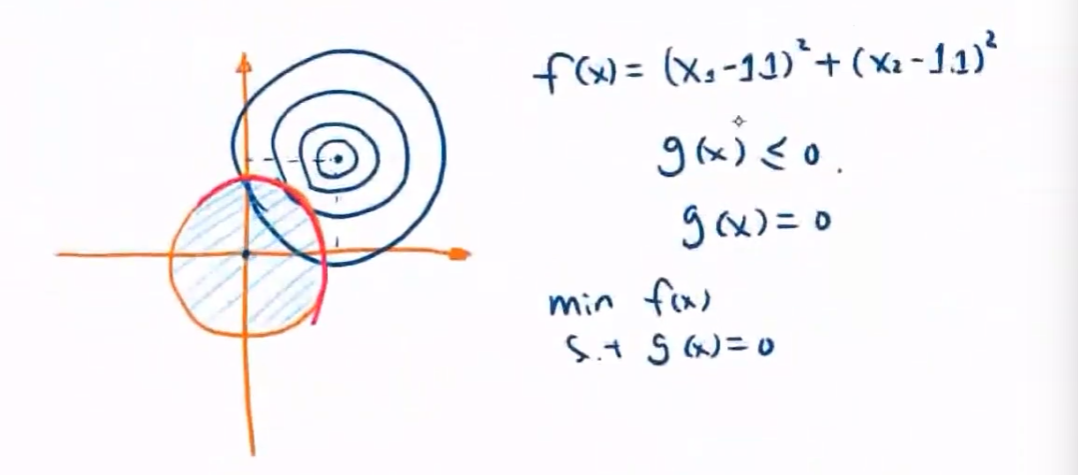 f(x) = (x₁-1.1)² + (x₂-1.1)²
g(x) ≤ 0.
g(x) = 0
min f(x)
s.t g(x) = 0